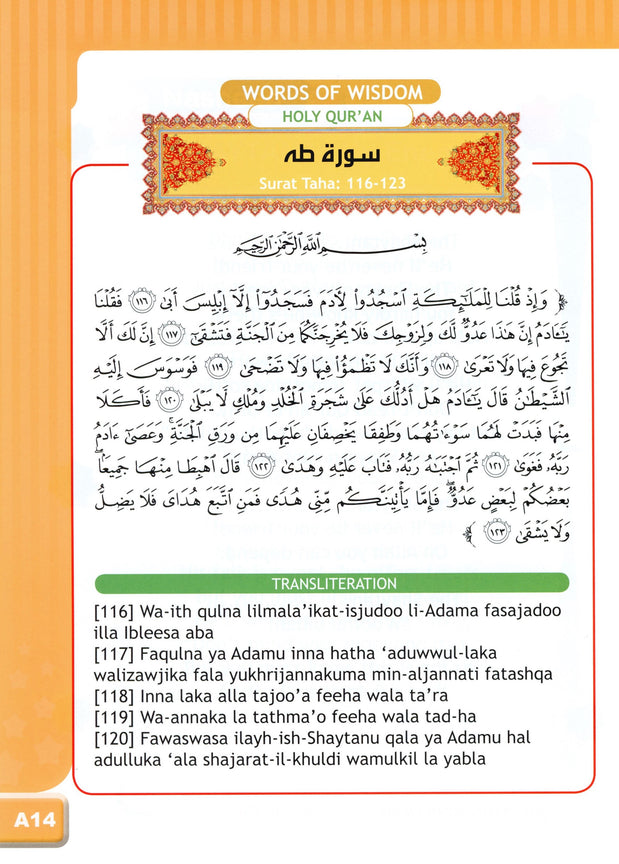 WORDS OF WISDOM
HOLY QUR’AN
سورة طه
Surat Taha: 116-123
بِسْمِ اللَّهِ الرَّحْمَٰنِ الرَّحِيمِ
﴿ وَإِذْ قُلْنَا لِلْمَلَٰٓئِكَةِ ٱسْجُدُوا۟ لِءَادَمَ فَسَجَدُوٓا۟ إِلَّآ إِبْلِيسَ أَبَىٰ ١١٦ فَقُلْنَا
يَٰٓـَٔادَمُ إِنَّ هَٰذَا عَدُوٌّ لَّكَ وَلِزَوْجِكَ فَلَا يُخْرِجَنَّكُمَا مِنَ ٱلْجَنَّةِ فَتَشْقَىٰٓ ١١٧ إِنَّ لَكَ أَلَّا
تَجُوعَ فِيهَا وَلَا تَعْرَىٰ ١١٨ وَأَنَّكَ لَا تَظْمَؤُا۟ فِيهَا وَلَا تَضْحَىٰ ١١٩ فَوَسْوَسَ إِلَيْهِ
ٱلشَّيْطَٰنُ قَالَ يَٰٓـَٔادَمُ هَلْ أَدُلُّكَ عَلَىٰ شَجَرَةِ ٱلْخُلْدِ وَمُلْكٍ لَّا يَبْلَىٰ ١٢٠ فَأَكَلَا
مِنْهَا فَبَدَتْ لَهُمَا سَوْءَٰتُهُمَا وَطَفِقَا يَخْصِفَانِ عَلَيْهِمَا مِن وَرَقِ ٱلْجَنَّةِ ۚ وَعَصَىٰٓ ءَادَمُ
رَبَّهُۥ فَغَوَىٰ ١٢١ ثُمَّ ٱجْتَبَٰهُ رَبُّهُۥ فَتَابَ عَلَيْهِ وَهَدَىٰ ١٢٢ قَالَ ٱهْبِطَا مِنْهَا جَمِيعًۢا ۖ
بَعْضُكُمْ لِبَعْضٍ عَدُوٌّ ۖ فَإِمَّا يَأْتِيَنَّكُم مِّنِّى هُدًى فَمَنِ ٱتَّبَعَ هُدَاىَ فَلَا يَضِلُّ
وَلَا يَشْقَىٰ ١٢٣ ﴾
TRANSLITERATION
[116] Wa-ith qulna lilmala’ikat-isjudoo li-Adama fasajadoo
illa Ibleesa aba
[117] Faqulna ya Adamu inna hatha ‘aduwwul-laka
walizawjika fala yukhrijannakuma min-aljannati fatashqa
[118] Inna laka alla tajoo’a feeha wala ta’ra
[119] Wa-annaka la tathma’o feeha wala tad-ha
[120] Fawaswasa ilayh-ish-Shaytanu qala ya Adamu hal
adulluka ‘ala shajarat-il-khuldi wamulkil la yabla
A14